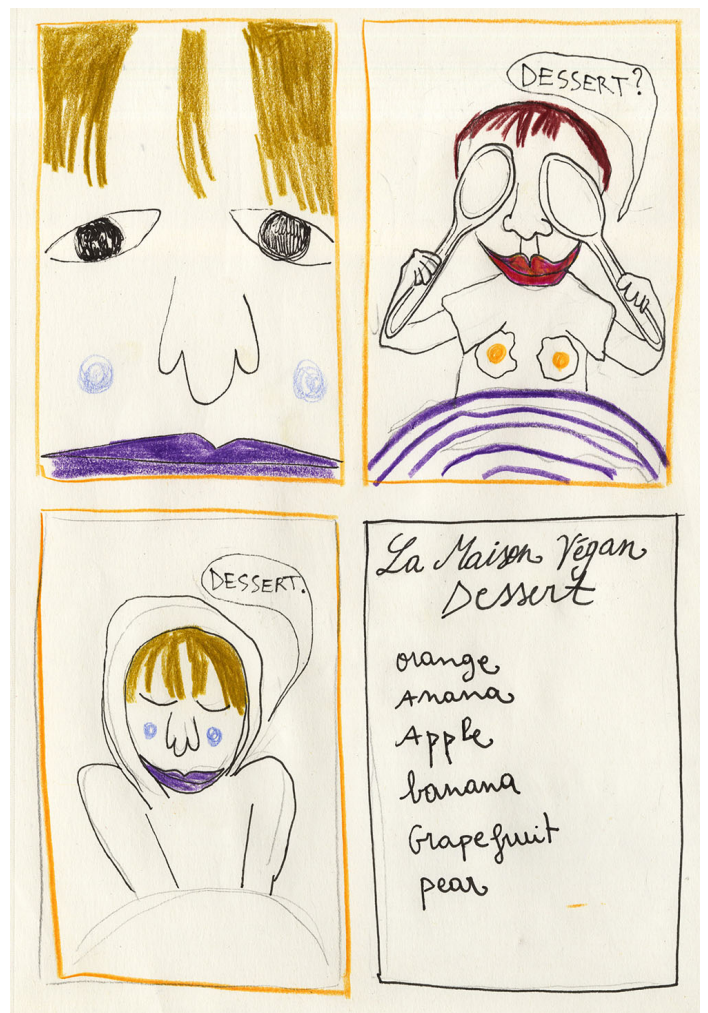 DESSERT?
DESSERT.
La Maison Végan
Dessert
orange
Anana
Apple
banana
Grapefruit
pear